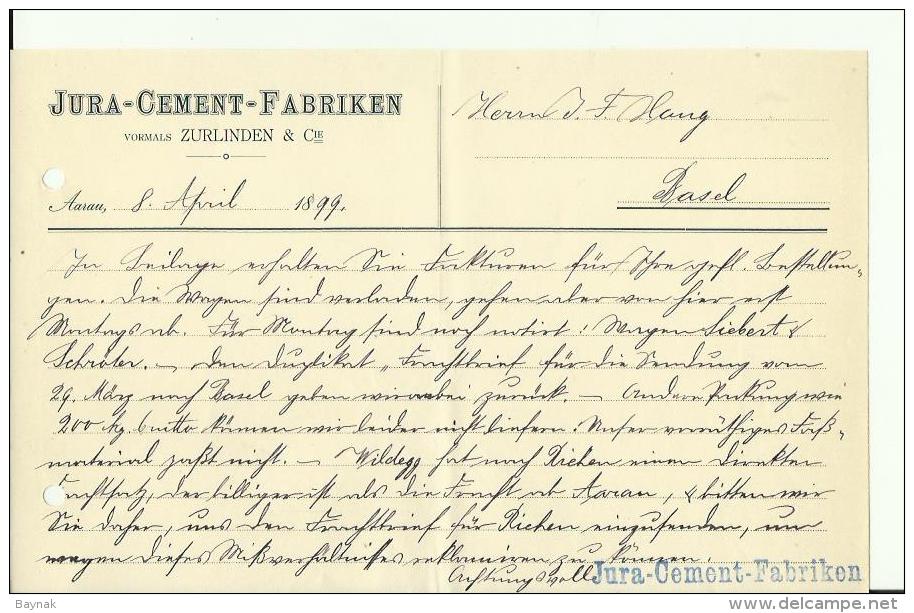 JURA-CEMENT-FABRIKEN
VORMALS ZURLINDEN & CIE
Aarau, 8. April 1899.
Herrn J. F. Haug
Basel
In Beilage erhalten Sie Fakturen für Ihre gefl. Bestellun-
gen. Die Wagen sind verladen, gehen aber von hier erst
Montags ab. Für Montag sind noch notirt: Wagen Siebert &
Schröter. – Den Duplikat-Frachtbrief für die Sendung vom
29. März nach Basel geben wir anbei zurück. – Andere Packung wie
200 Kg. brutto können wir leider nicht liefern. Unser vorräthiges Faß-
material paßt nicht. – Wildegg hat nach Riehen einen direkten
Frachtsatz, der billiger ist als die Fracht ab Aarau, & bitten wir
Sie daher, uns den Frachtbrief für Riehen einzusenden, um
wegen dieses Mißverhältnisses reklamiren zu können.
Achtungsvoll Jura-Cement-Fabriken
Baynak
delcampe.net